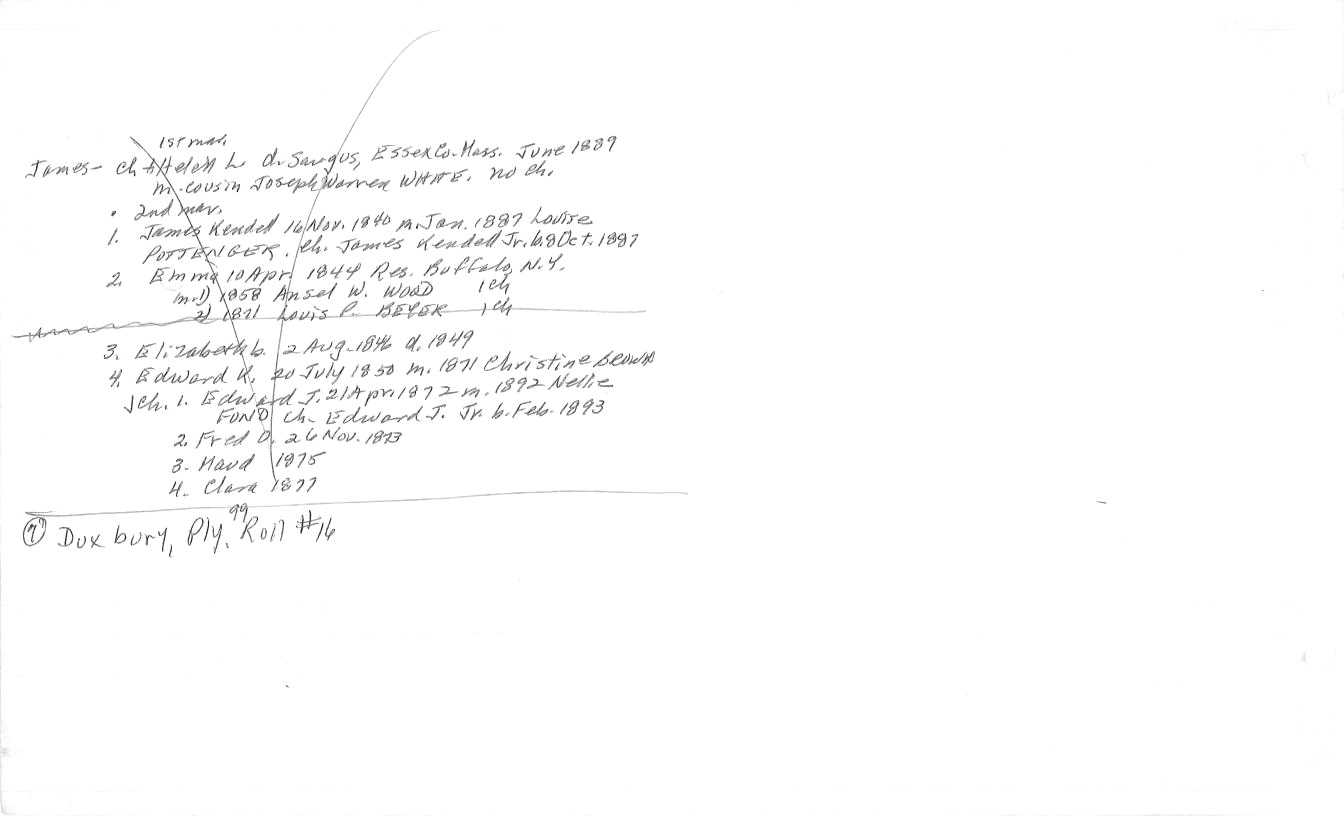 1st mar.
James - ch Helen L d. Saugus, Essex Co. Mass. June 1889
m. cousin Joseph Warren WHITE. no ch.
• 2nd mar.
1. James Kendell 16 Nov. 1840 m. Jan. 1887 Louise
POTTENGER. ch. James Kendell Jr. b. 8 Oct. 1887
2. Emma 10 Apr. 1844 Res. Buffalo, N.Y.
m. 1) 1858 Ansel W. WOOD 1 ch
2) 1871 Louis P. BEYER 1 ch
3. Elizabeth b. 2 Aug. 1846 d. 1849
4. Edward K. 20 July 1850 m. 1871 Christine BROWN
ch. 1. Edward J. 21 Apr. 1872 m. 1892 Nellie
FUND ch. Edward J. Jr. b. Feb. 1893
2. Fred D. 26 Nov. 1873
3. Maud 1875
4. Clara 1877
99
7 Duxbury, Ply. Roll #16